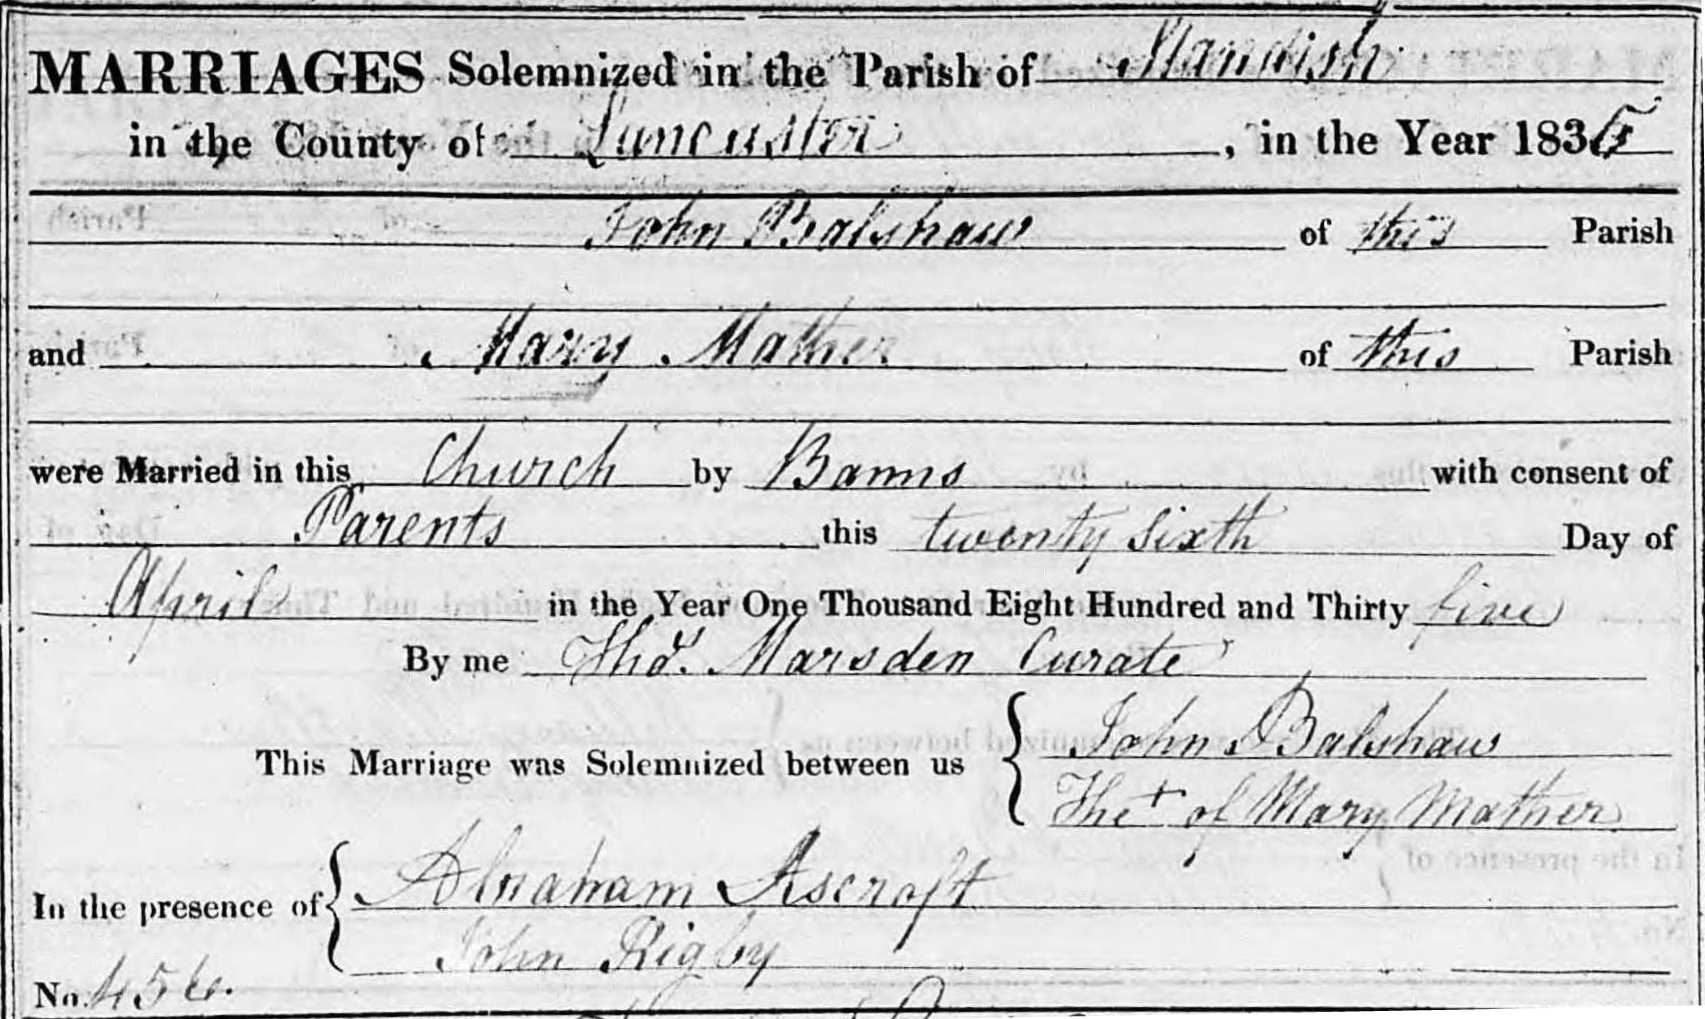 MARRIAGES Solemnized in the Parish of Standish
in the County of Lancaster, in the Year 1835
John Balshaw of this Parish
and Mary Mather of this Parish
were Married in this Church by Banns with consent of
Parents this twenty sixth Day of
April in the Year One Thousand Eight Hundred and Thirty five
By me Thos. Marsden Curate
This Marriage was Solemnized between us { John Balshaw
The + of Mary Mather
In the presence of { Abraham Ascroft
John Rigby
No. 456.